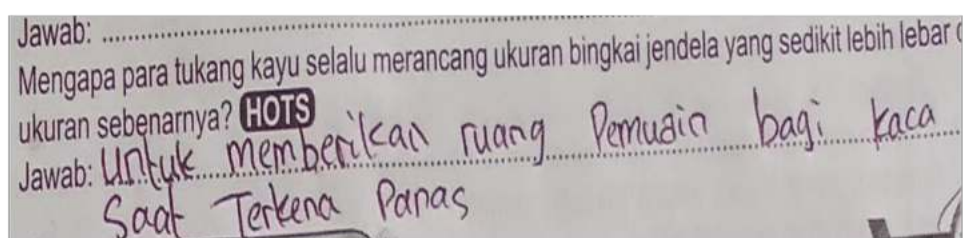 Jawab: ........................................
Mengapa para tukang kayu selalu merancang ukuran bingkai jendela yang sedikit lebih lebar
ukuran sebenarnya? HOTS
Jawab: Untuk memberikan ruang Pemuain bagi kaca
Saat Terkena Panas